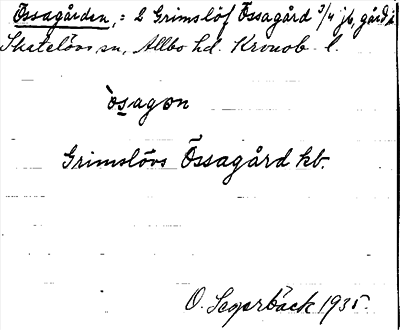 Össagården, = 2 Grimslöf Össagård 3/4 jb, gård i
Skatelövs sn, Allbo hd. Kronob. l.
òsagon
Grimslövs Össagård kb.
O. Sagerbäck 1935.